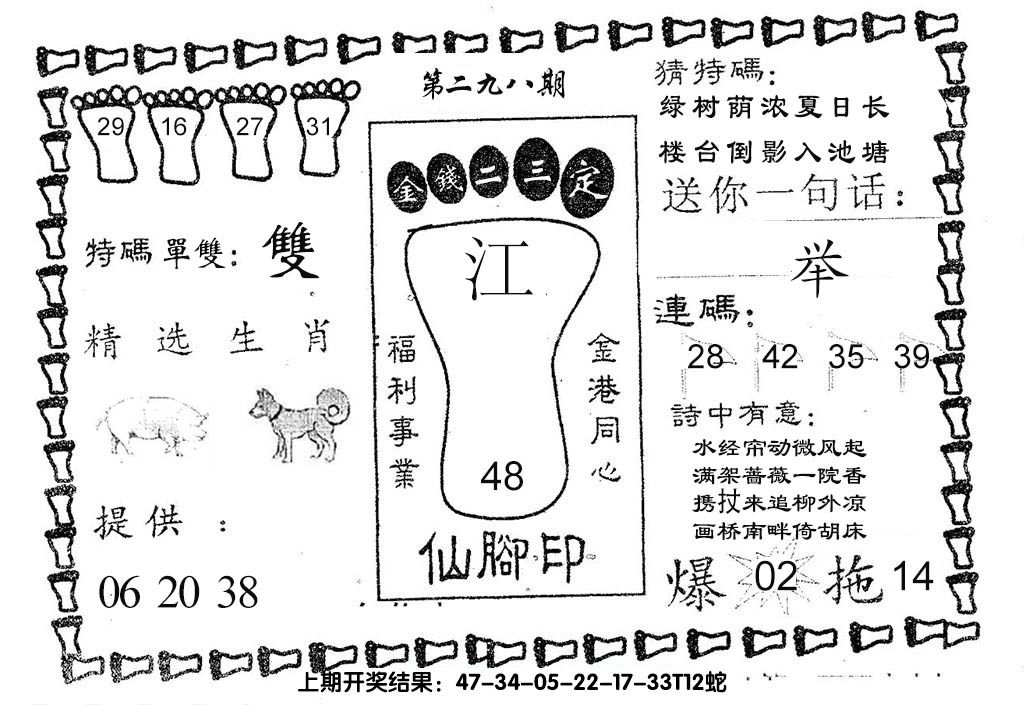 第二九八期
29 16 27 31
特碼單雙：雙
精选生肖
提供：
06 20 38
金錢二三定
江
福利事業
金港同心
48
仙腳印
猜特碼：
绿树荫浓夏日长
楼台倒影入池塘
送你一句话：
举
連碼：
28 42 35 39
詩中有意：
水经帘动微风起
满架蔷薇一院香
携扙来追柳外凉
画桥南畔倚胡床
爆 02 拖 14
上期开奖结果：47-34-05-22-17-33T12蛇